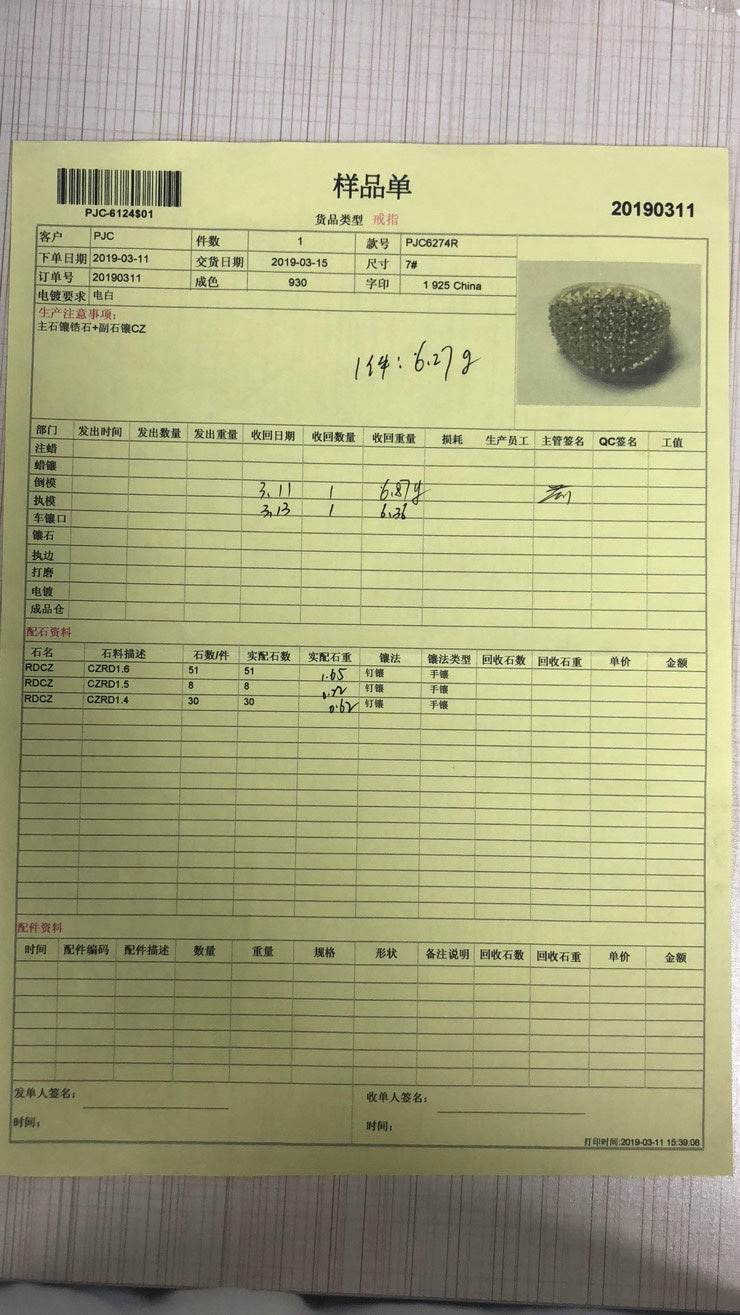 样品单
PJC-6124$01
货品类型 戒指
20190311
客户 PJC 件数 1 款号 PJC6274R
下单日期 2019-03-11 交货日期 2019-03-15 尺寸 7#
订单号 20190311 成色 930 字印 1 925 China
电镀要求 电白
生产注意事项:
主石镶锆石+副石镶CZ
1件: 6.27g
部门 发出时间 发出数量 发出重量 收回日期 收回数量 收回重量 损耗 生产员工 主管签名 QC签名 工值
注蜡
蜡镶
倒模 3.11 1 6.87g
执模 3.13 1 6.36
车镶口
镶石
执边
打磨
电镀
成品仓
配石资料
石名 石料描述 石数/件 实配石数 实配石重 镶法 镶法类型 回收石数 回收石重 单价 金额
RDCZ CZRD1.6 51 51 1.65 钉镶 手镶
RDCZ CZRD1.5 8 8 0.22 钉镶 手镶
RDCZ CZRD1.4 30 30 0.62 钉镶 手镶
配件资料
时间 配件编码 配件描述 数量 重量 规格 形状 备注说明 回收石数 回收石重 单价 金额
发单人签名: 收单人签名:
时间: 时间:
打印时间:2019-03-11 15:39:08